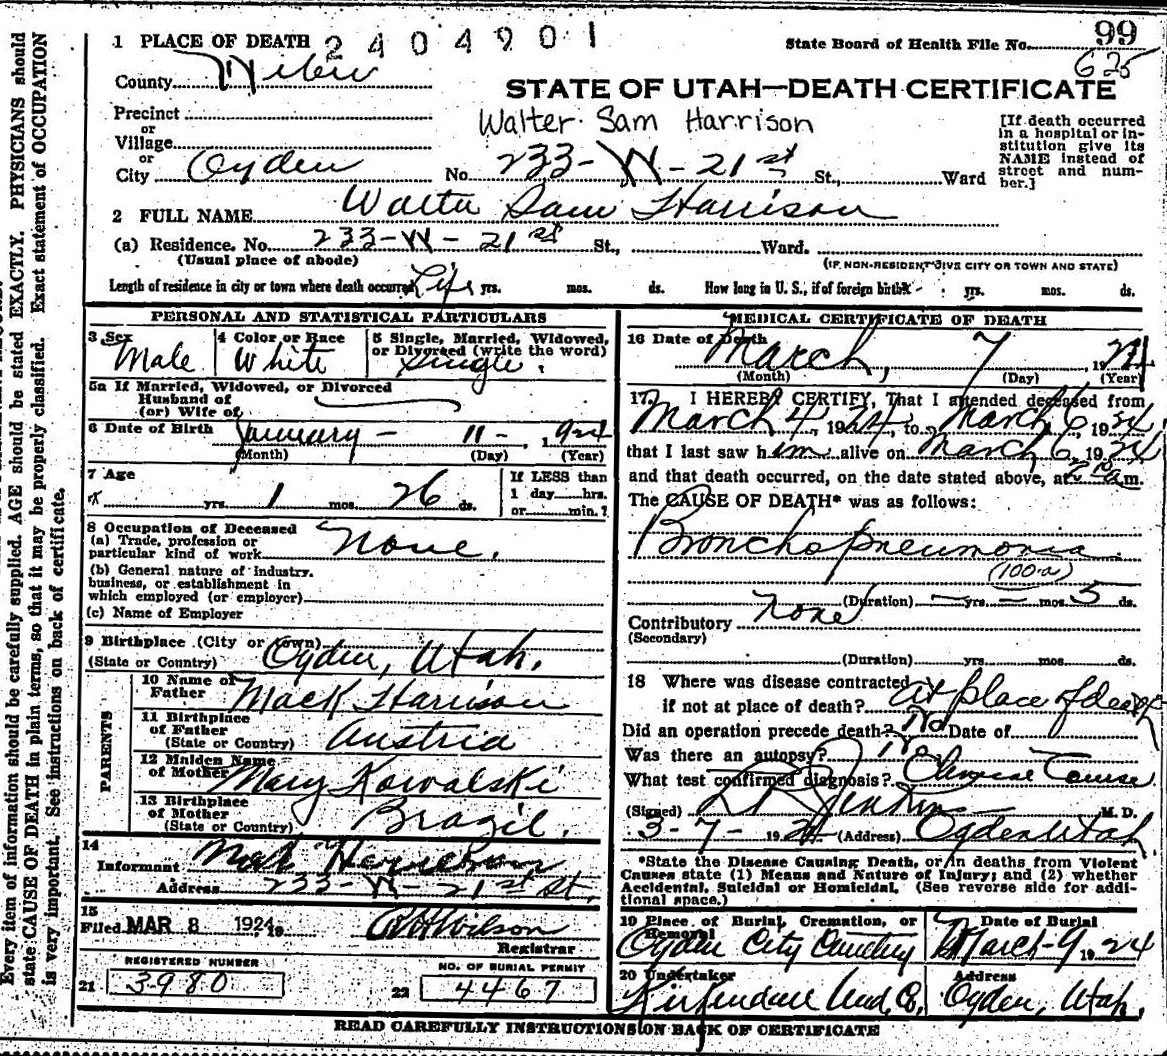 1 PLACE OF DEATH 2404901
State Board of Health File No. 99
625
County Weber
STATE OF UTAH—DEATH CERTIFICATE
Precinct
or
Village
or
City Ogden No. 233-W-21st St., Ward
Walter Sam Harrison
[If death occurred
in a hospital or in-
stitution give its
NAME instead of
street and num-
ber.]
2 FULL NAME Walter Sam Harrison
(a) Residence. No. 233-W-21st St., Ward.
(Usual place of abode)
(IF NON-RESIDENT GIVE CITY OR TOWN AND STATE)
Length of residence in city or town where death occurred Life yrs. mos. ds. How long in U. S., if of foreign birth? yrs. mos. ds.
PERSONAL AND STATISTICAL PARTICULARS
3 Sex Male
4 Color or Race White
5 Single, Married, Widowed,
or Divorced (write the word)
Single.
5a If Married, Widowed, or Divorced
Husband of
(or) Wife of
6 Date of Birth January - 11 - 1924
(Month) (Day) (Year)
7 Age
yrs. 1 mos. 26 ds.
If LESS than
1 day hrs.
or min.?
8 Occupation of Deceased
(a) Trade, profession or
particular kind of work None.
(b) General nature of industry,
business, or establishment in
which employed (or employer)
(c) Name of Employer
9 Birthplace (City or town)
(State or Country) Ogden, Utah.
PARENTS
10 Name of
Father Mack Harrison
11 Birthplace
of Father
(State or Country) Austria
12 Maiden Name
of Mother Mary Kowalski
13 Birthplace
of Mother
(State or Country) Brazil.
14
Informant
Address 233-W-21st St
15
Filed MAR 8 1924, 19 Wilson
Registrar
REGISTERED NUMBER
21 3980
NO. OF BURIAL PERMIT
22 4467
MEDICAL CERTIFICATE OF DEATH
16 Date of Death March, 7 1924
(Month) (Day) (Year)
17 I HEREBY CERTIFY, That I attended deceased from
March 4, 1924, to March 6, 1924
that I last saw him alive on March 6, 1924
and that death occurred, on the date stated above, at 2 a m.
The CAUSE OF DEATH* was as follows:
Bronchopneumonia
(100-a)
(Duration) — yrs. — mos. 5 ds.
Contributory None
(Secondary)
(Duration) yrs. mos. ds.
18 Where was disease contracted
if not at place of death? At place of death
Did an operation precede death? No Date of
Was there an autopsy? No
What test confirmed diagnosis? Clinical Course
(Signed) Jenkins M. D.
3-7-1924 (Address) Ogden Utah
*State the Disease Causing Death, or in deaths from Violent
Causes state (1) Means and Nature of Injury; and (2) whether
Accidental, Suicidal or Homicidal. (See reverse side for addi-
tional space.)
19 Place of Burial, Cremation, or
Removal
Ogden City Cemetery
Date of Burial
March-9 1924
20 Undertaker
Kirkendall Und. Co.
Address
Ogden, Utah.
READ CAREFULLY INSTRUCTIONS ON BACK OF CERTIFICATE
Every item of information should be carefully supplied. AGE should be stated EXACTLY. PHYSICIANS should
state CAUSE OF DEATH in plain terms, so that it may be properly classified. Exact statement of OCCUPATION
is very important. See instructions on back of certificate.